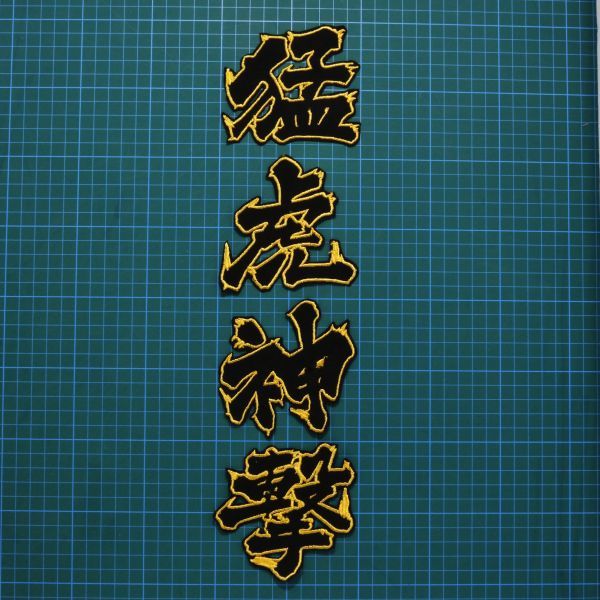 猛虎神撃